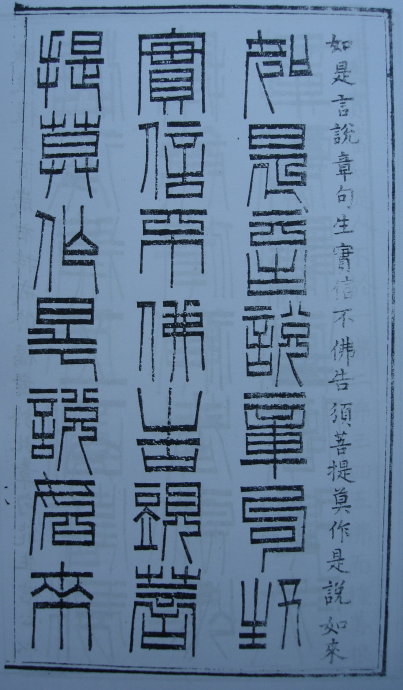 如是言說章句生實信不佛告須菩提莫作是說如來
如是言說章句生
實信不佛告須菩
提莫作是說如來